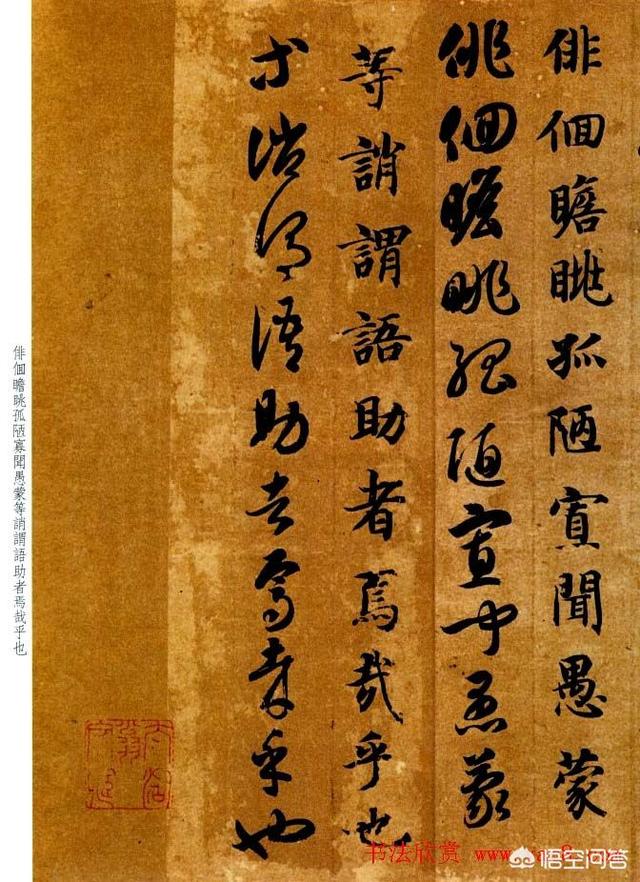 俳佪瞻眺孤陋寡聞愚蒙
俳佪瞻眺孤陋寡聞愚蒙
等誚謂語助者焉哉乎也
等誚謂語助者焉哉乎也
俳佪瞻眺孤陋寡聞愚蒙等誚謂語助者焉哉乎也
书法欣赏
悟空问答